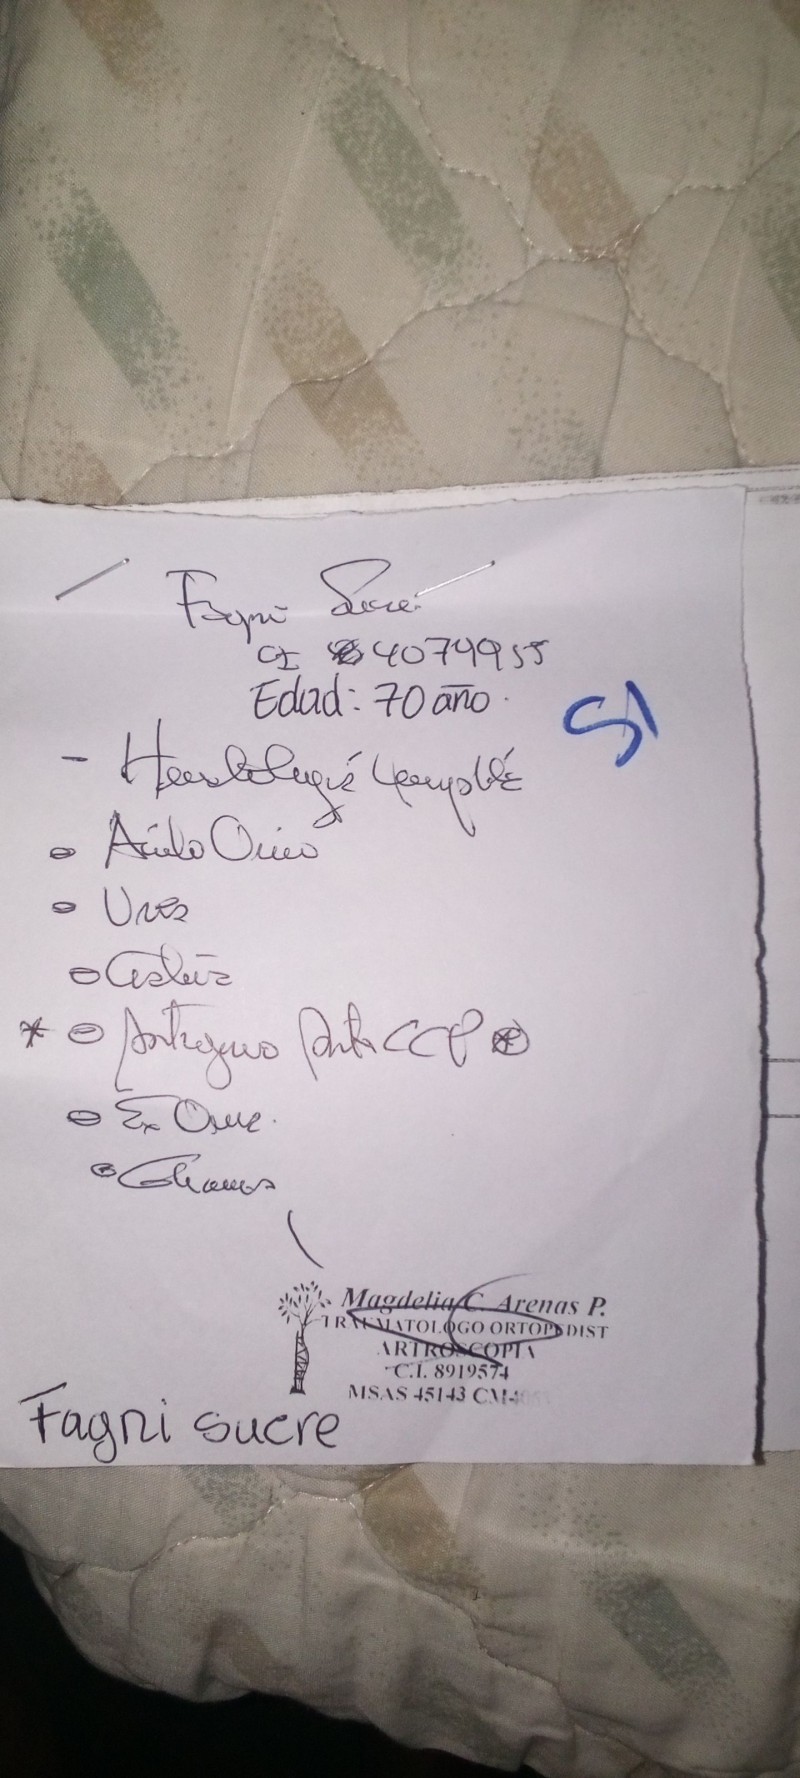 Fagni Sucre
CI 4074955
Edad: 70 año
SI
- Hematología completa
Acido Urico
Urea
* Antigeno Anti CCP *
Ex Orina
Magdelia C. Arenas P.
TRAUMATOLOGO ORTOPEDIST
ARTROSCOPIA
C.I. 8919574
MSAS 45143 CM
Fagni sucre